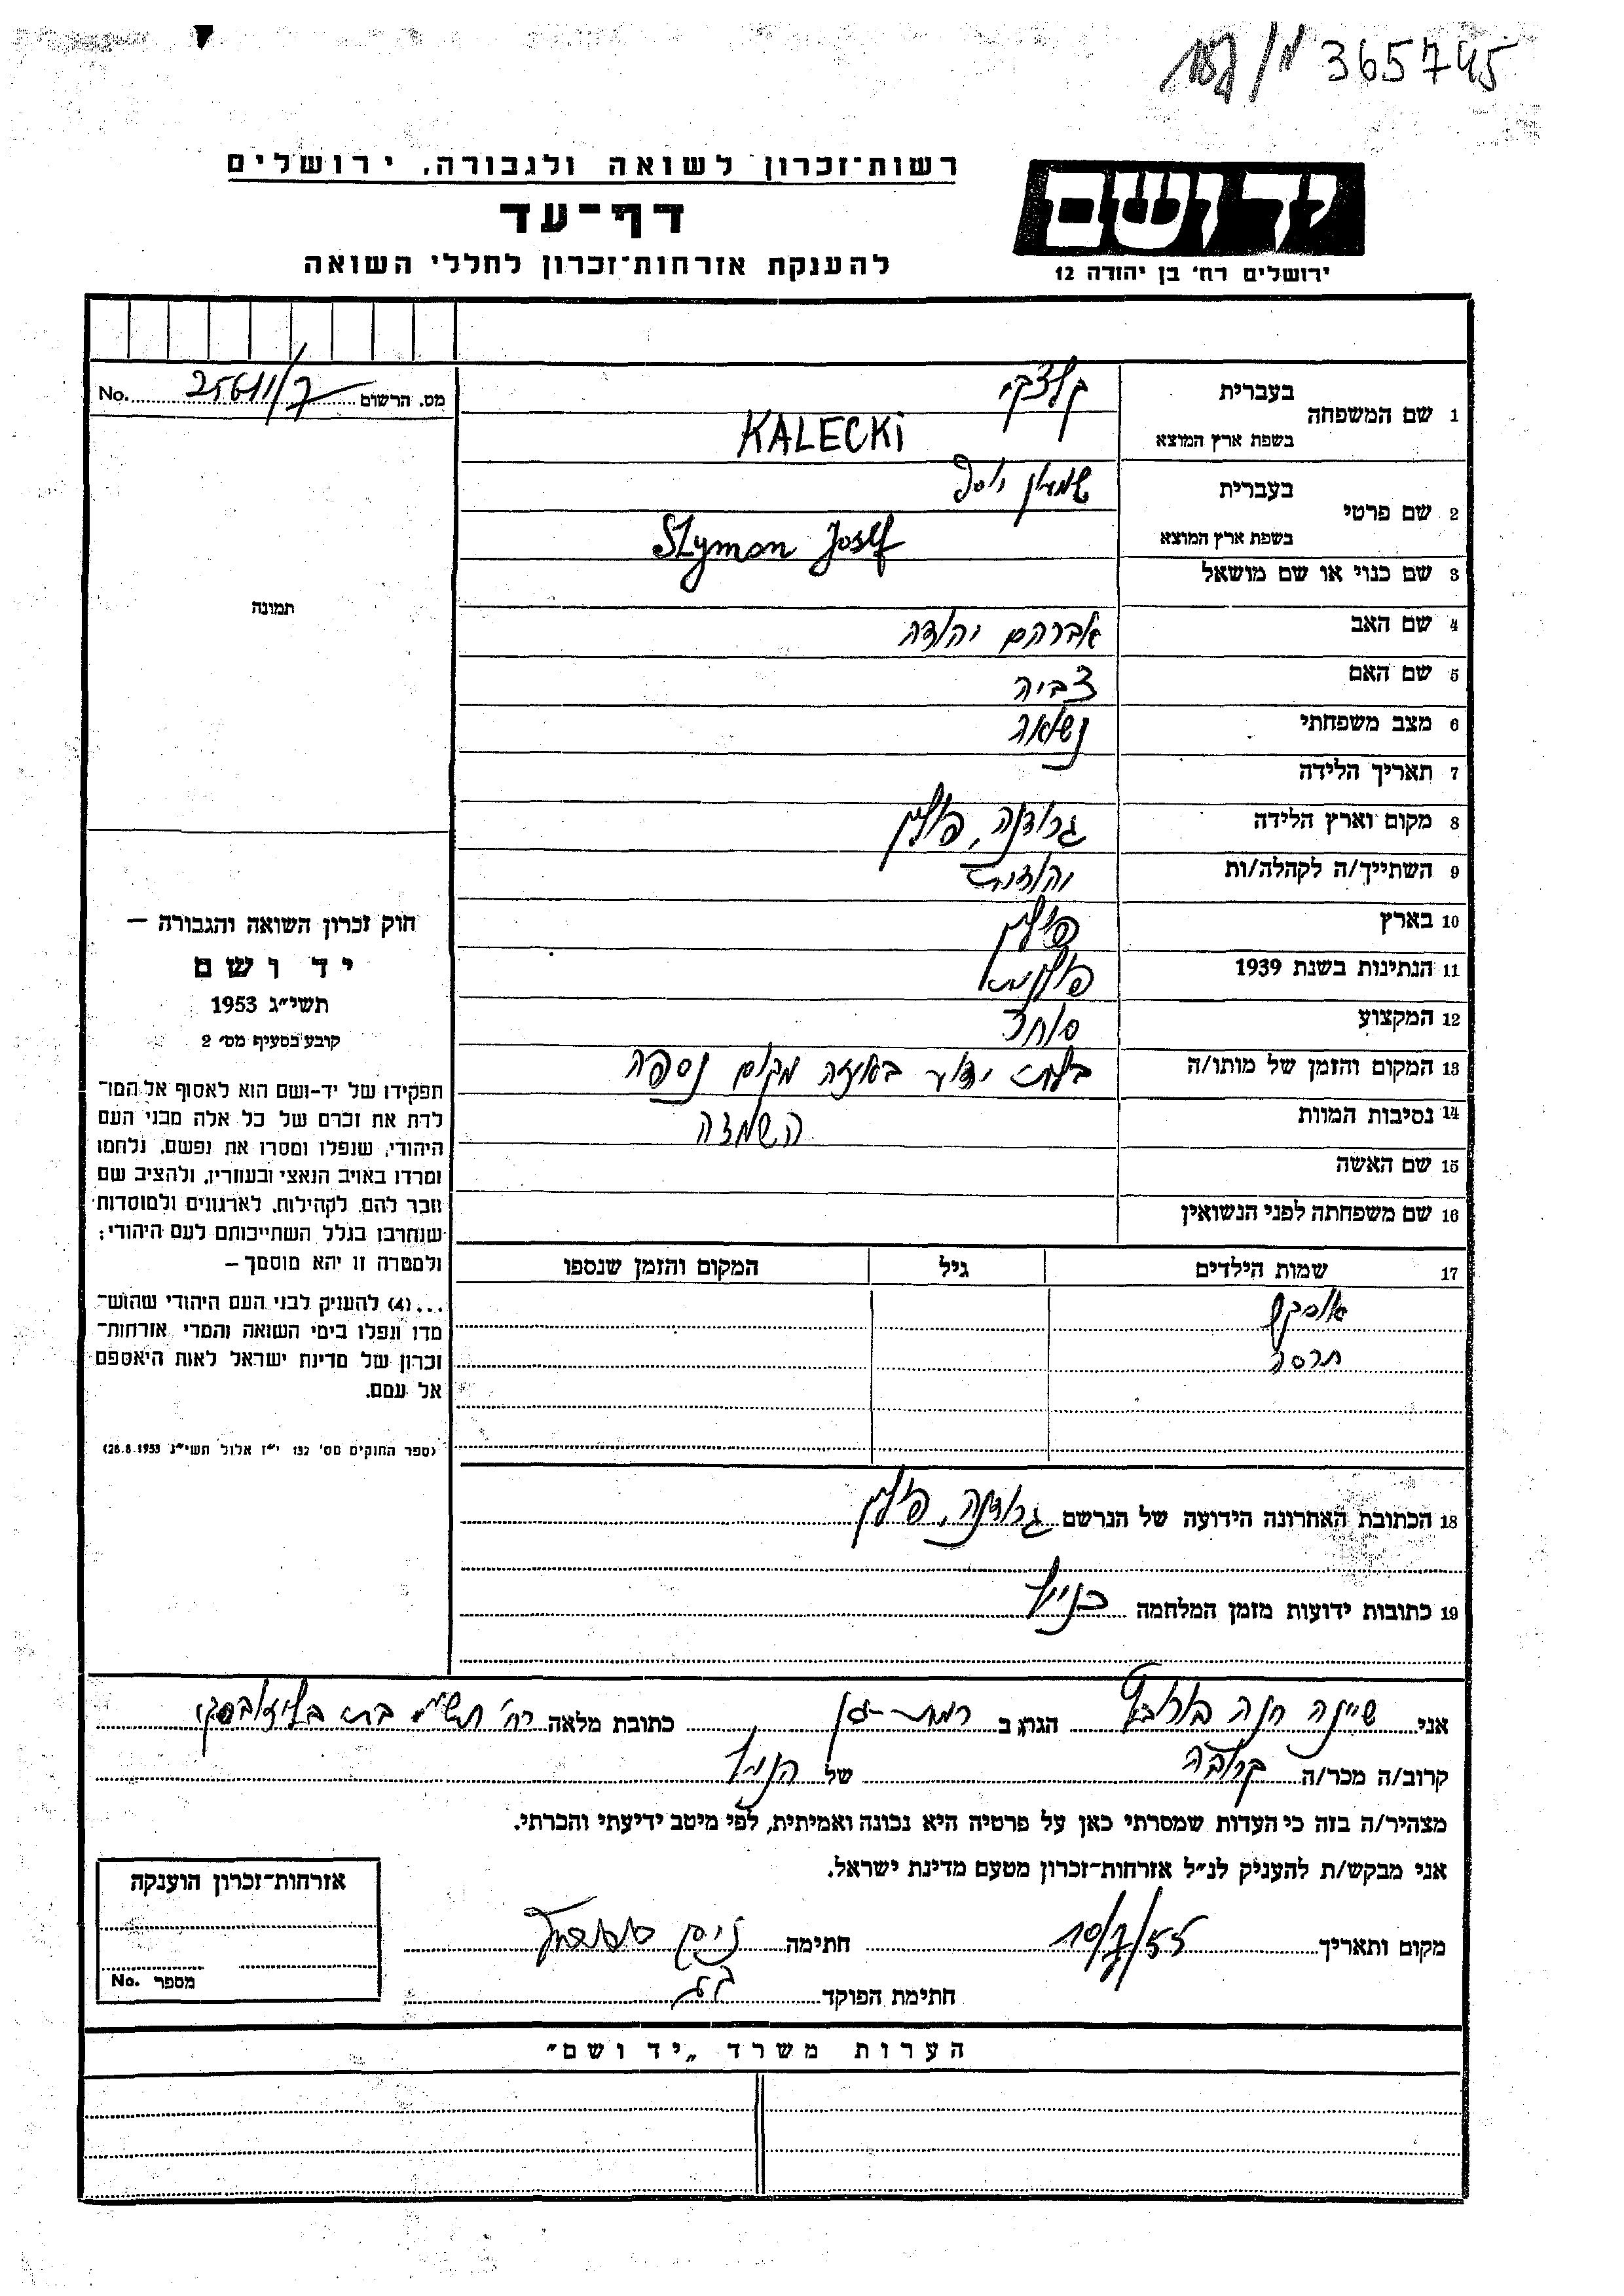 365745
רשות־זכרון לשואה ולגבורה, ירושלים
דף־עד
להענקת אזרחות־זכרון לחללי השואה
יד ושם
ירושלים רח' בן יהודה 12
מס. הרשום No. 25611/7
תמונה
1 שם המשפחה בעברית קלצקי
בשפת ארץ המוצא KALECKI
2 שם פרטי בעברית שמעון יוסף
בשפת ארץ המוצא Szymon Josef
3 שם כנוי או שם מושאל
4 שם האב אברהם יהודה
5 שם האם צביה
6 מצב משפחתי נשואה
7 תאריך הלידה
8 מקום וארץ הלידה גרודנה, פולין
9 השתייך/ה לקהלה/ות יהודית
10 בארץ פולין
11 הנתינות בשנת 1939 פולנית
12 המקצוע סוחר
13 המקום והזמן של מותו/ה בלתי ידוע באיזה מקום נספה
14 נסיבות המוות השמדה
15 שם האשה
16 שם משפחתה לפני הנשואין
17 שמות הילדים גיל המקום והזמן שנספו
18 הכתובת האחרונה הידועה של הנרשם גרודנה, פולין
19 כתובות ידועות מזמן המלחמה כנ"ל
חוק זכרון השואה והגבורה —
יד ושם
תשי״ג 1953
קובע בסעיף מס׳ 2
תפקידו של יד-ושם הוא לאסוף אל המו־
לדת את זכרם של כל אלה מבני העם
היהודי, שנפלו ומסרו את נפשם, נלחמו
ומרדו באויב הנאצי ובעוזריו, ולהציב שם
וזכר להם, לקהילות, לארגונים ולמוסדות
שנחרבו בגלל השתייכותם לעם היהודי;
ולמטרה זו יהא מוסמך —
...(4) להעניק לבני העם היהודי שהוש־
מדו ונפלו בימי השואה והמרי אזרחות־
זכרון של מדינת ישראל לאות היאספם
אל עמם.
(ספר החוקים מס׳ 132 י״ז אלול תשי״ג 28.8.1953)
אני שיינה חנה הגר ב רמת-גן כתובת מלאה רח'
קרוב/ה מכר/ה קרובה של הנ"ל
מצהיר/ה בזה כי העדות שמסרתי כאן על פרטיה היא נכונה ואמיתית, לפי מיטב ידיעתי והכרתי.
אני מבקש/ת להעניק לנ״ל אזרחות־זכרון מטעם מדינת ישראל.
מקום ותאריך 10/7/55 חתימה
חתימת הפוקד
אזרחות־זכרון הוענקה
מספר No.
הערות משרד „יד ושם״